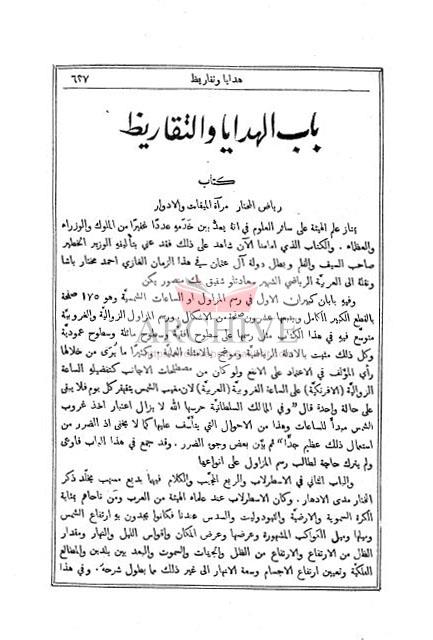 هدايا وتقاريظ
٦٢٧
باب الهدايا والتقاريظ
كتاب
رياض المختار مرآة الميقات والادوار
يمتاز علم الهيئة على سائر العلوم في انه يعدُّ بين خَدَمو عددًا غفيرًا من الملوك والوزراء
والعظماء. والكتاب الذي امامنا الآن شاهد على ذلك فقد عني بتأليفهِ الوزير الخطير
صاحب السيف والقلم وبطل دولة آل عثمان في هذا الزمان الغازي احمد مختار باشا
ونقلهُ الى العربية الرياضي الشهير سعادتلو شفيق بك منصور يكن
وفيهِ بابان كبيران الاول في رسم المزاول او الساعات الشمسيَّة وهو ١٧٥ صفحة
بالقطع الكبير الكامل ويتبعها عشرون صفحة من الاشكال. ورسم المزاول الزوالية والغروبية
متوسّع فيهِ في هذا الكتاب مثل رسمها على سطوح افقية وسطوح مائلة وسطوح عمودية
وكل ذلك مثبت بالادلة الرياضيَّة وموضح بالامثلة العمليَّة. وكثيرًا ما يُرَى من خلالها
رأي المؤلف في الاعتماد على الانفع ولو كان من مصطلحات الاجانب كتفضيلهِ الساعة
الزواليَّة (الافرنكيَّة) على الساعة الغروبيَّة (العربية) لان مغيب الشمس يتغير كل يوم فلا يبقى
على حالة واحدة قال "وفي الممالك السلطانيَّة حرسها الله لا يزال اعتبار اخذ غروب
الشمس مبدأ للساعات وهذا من الاحوال التي يتأسّف عليها كما لا يخفى اذ الضرر من
استعمال ذلك عظيم جدًّا" ثم بيّن بعض وجوه الضرر. وقد جمع في هذا الباب فاوعى
ولم يترك حاجة لطالب رسم المزاول على انواعها
والباب الثاني في الاسطرلاب والربع المجيَّب والكلام فيها بديع مسهب يخلّد ذكر
المختار مدى الادهار. وكان الاسطرلاب عند علماء الهيئة من العرب ومن ناحاهم بمثابة
الكرة السموية والارضيَّة والثيودوليت والسدس عندنا فكانوا يجدون بهِ ارتفاع الشمس
وميلها وميل الكواكب المشهورة وعرضها وعرض المكان واقواس الليل والنهار ومقدار
الظل من الارتفاع والارتفاع من الظل والجهات والسموت والبعد بين بلدين والمطالع
الفلكيَّة وتعيين ارتفاع الاجسام وسعة الانهار الى غير ذلك مما يطول شرحهُ. وفي هذا
ARCHIVE